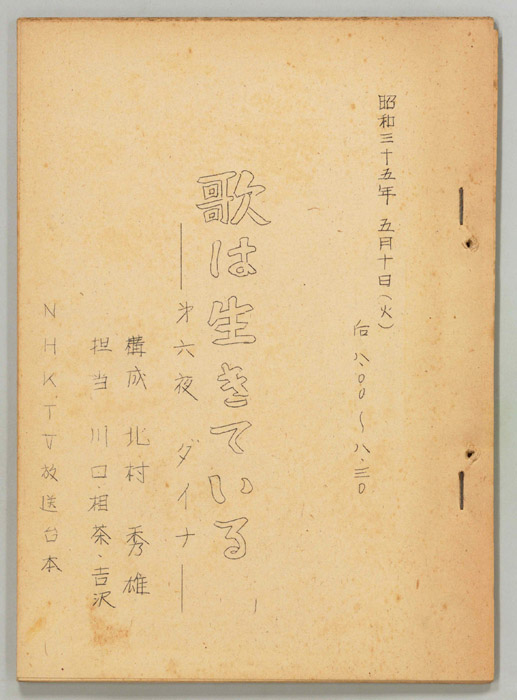 昭和三十五年 五月十日(火)
后 八.〇〇~八.三〇
歌は生きている
―才六夜 ダイナ―
構成 北村 秀雄
担当 川口・相茶・吉沢
NHKTV放送台本